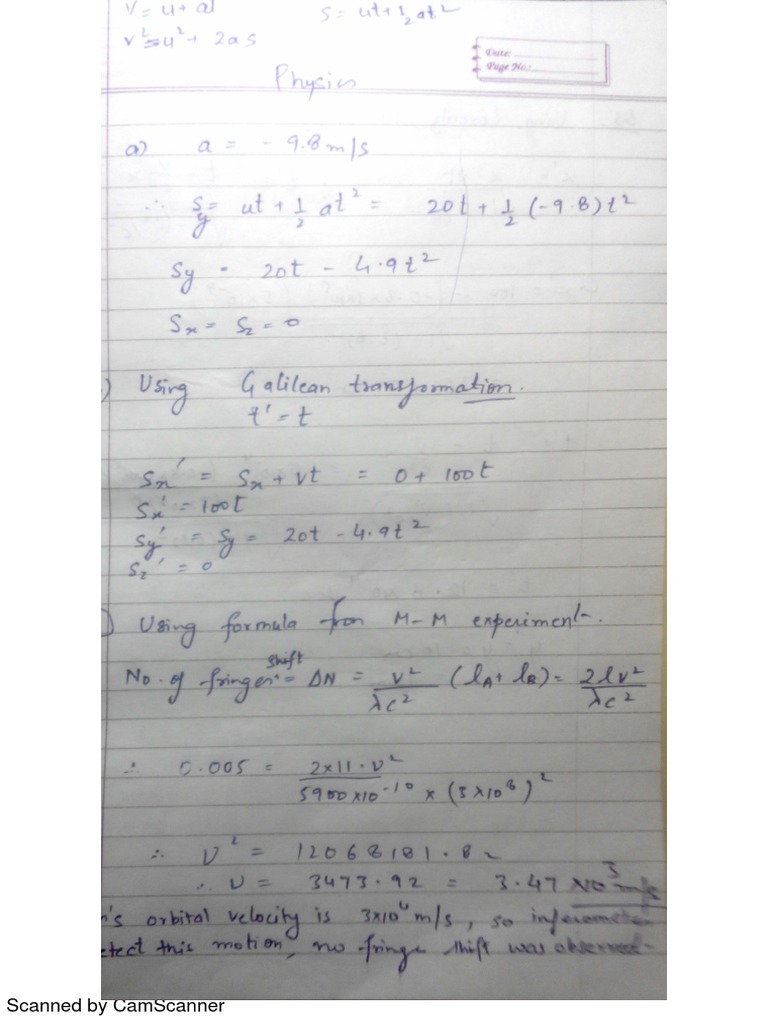 V = u + at    S = ut + 1/2 at²
v² = u² + 2as
Date:
Page No.:
Physics
a) a = - 9.8 m/s
∴ Sy = ut + 1/2 at² = 20t + 1/2 (-9.8)t²
Sy = 20t - 4.9t²
Sx = Sz = 0
) Using Galilean transformation.
t' = t
Sx' = Sx + vt = 0 + 100t
Sx' = 100t
Sy' = Sy = 20t - 4.9t²
Sz' = 0
) Using formula from M-M experiment.
No. of fringes shift = ΔN = v²/λc² (lA + lB) = 2lv²/λc²
∴ 0.005 = 2×11.v² / 5900×10⁻¹⁰ × (3×10⁸)²
∴ v² = 12068181.82
∴ v = 3473.92 = 3.47 ×10³ m/s
's orbital velocity is 3×10⁴ m/s, so inferometer
etect this motion, no fringe shift was observed.
Scanned by CamScanner